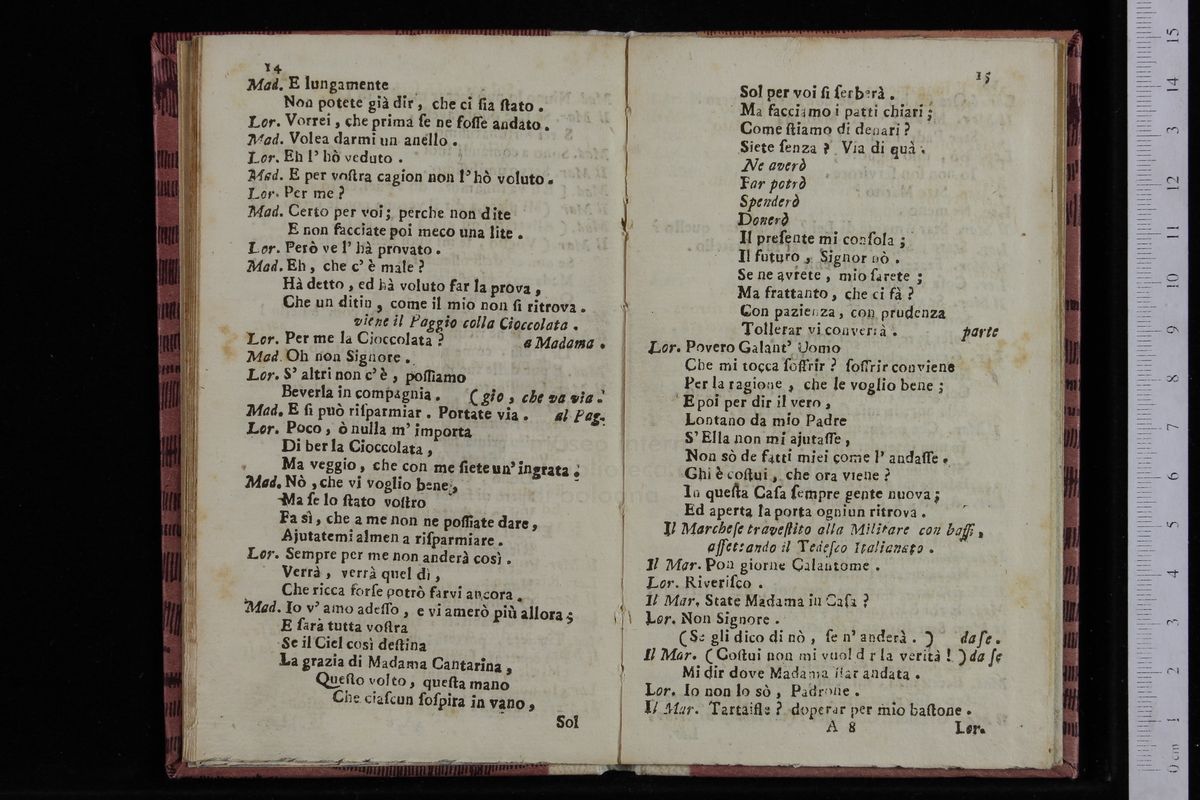 14
Mad. E lungamente
Non potete già dir, che ci ſia ſtato.
Lor. Vorrei, che prima ſe ne foſſe andato.
Mad. Volea darmi un anello.
Lor. Eh l' hò veduto.
Mad. E per voſtra cagion non l' hò voluto.
Lor. Per me?
Mad. Certo per voi; perche non dite
E non facciate poi meco una lite.
Lor. Però ve l' hà provato.
Mad. Eh, che c' è male?
Hà detto, ed hà voluto far la prova,
Che un ditin, come il mio non ſi ritrova.
viene il Paggio colla Cioccolata.
Lor. Per me la Cioccolata? a Madama.
Mad. Oh non Signore.
Lor. S' altri non c' è, poſſiamo
Beverla in compagnia. (gio, che va via.
Mad. E ſi può riſparmiar. Portate via. al Pag.
Lor. Poco, ò nulla m' importa
Di ber la Cioccolata,
Ma veggio, che con me ſiete un' ingrata.
Mad. Nò, che vi voglio bene,
Ma ſe lo ſtato voſtro
Fa sì, che a me non ne poſſiate dare,
Ajutatemi almen a riſparmiare.
Lor. Sempre per me non anderà così.
Verrà, verrà quel dì,
Che ricca forſe potrò farvi ancora.
Mad. Io v' amo adeſſo, e vi amerò più allora;
E ſarà tutta voſtra
Se il Ciel così deſtina
La grazia di Madama Cantarina,
Queſto volto, queſta mano
Che ciaſcun ſoſpira in vano,
Sol
15
Sol per voi ſi ſerberà.
Ma facciamo i patti chiari;
Come ſtiamo di denari?
Siete ſenza? Via di quà.
Ne averò
Far potrò
Spenderò
Donerò
Il preſente mi conſola;
Il futuro, Signor nò.
Se ne avrete, mio ſarete;
Ma frattanto, che ci fà?
Con pazienza, con prudenza
Tollerar vi converrà. parte
Lor. Povero Galant' Uomo
Che mi tocca ſoffrir? ſoffrir conviene
Per la ragione, che le voglio bene;
E poi per dir il vero,
Lontano da mio Padre
S' Ella non mi ajutaſſe,
Non sò de fatti miei come l' andaſſe.
Ghi è coſtui, che ora viene?
In queſta Caſa ſempre gente nuova;
Ed aperta la porta ogniun ritrova.
Il Marcheſe traveſtito alla Militare con baffi,
affettando il Tedeſco Italianato.
Il Mar. Pon giorne Calantome.
Lor. Riveriſco.
Il Mar. State Madama in Caſa?
Lor. Non Signore.
(Se gli dico di nò, ſe n' anderà.) da ſe.
Il Mar. (Coſtui non mi vuol d r la verità!) da ſe
Mi dir dove Madama ſtar andata.
Lor. Io non lo sò, Padrone.
Il Mar. Tartaifle? doperar per mio baſtone.
A 8 Lor.